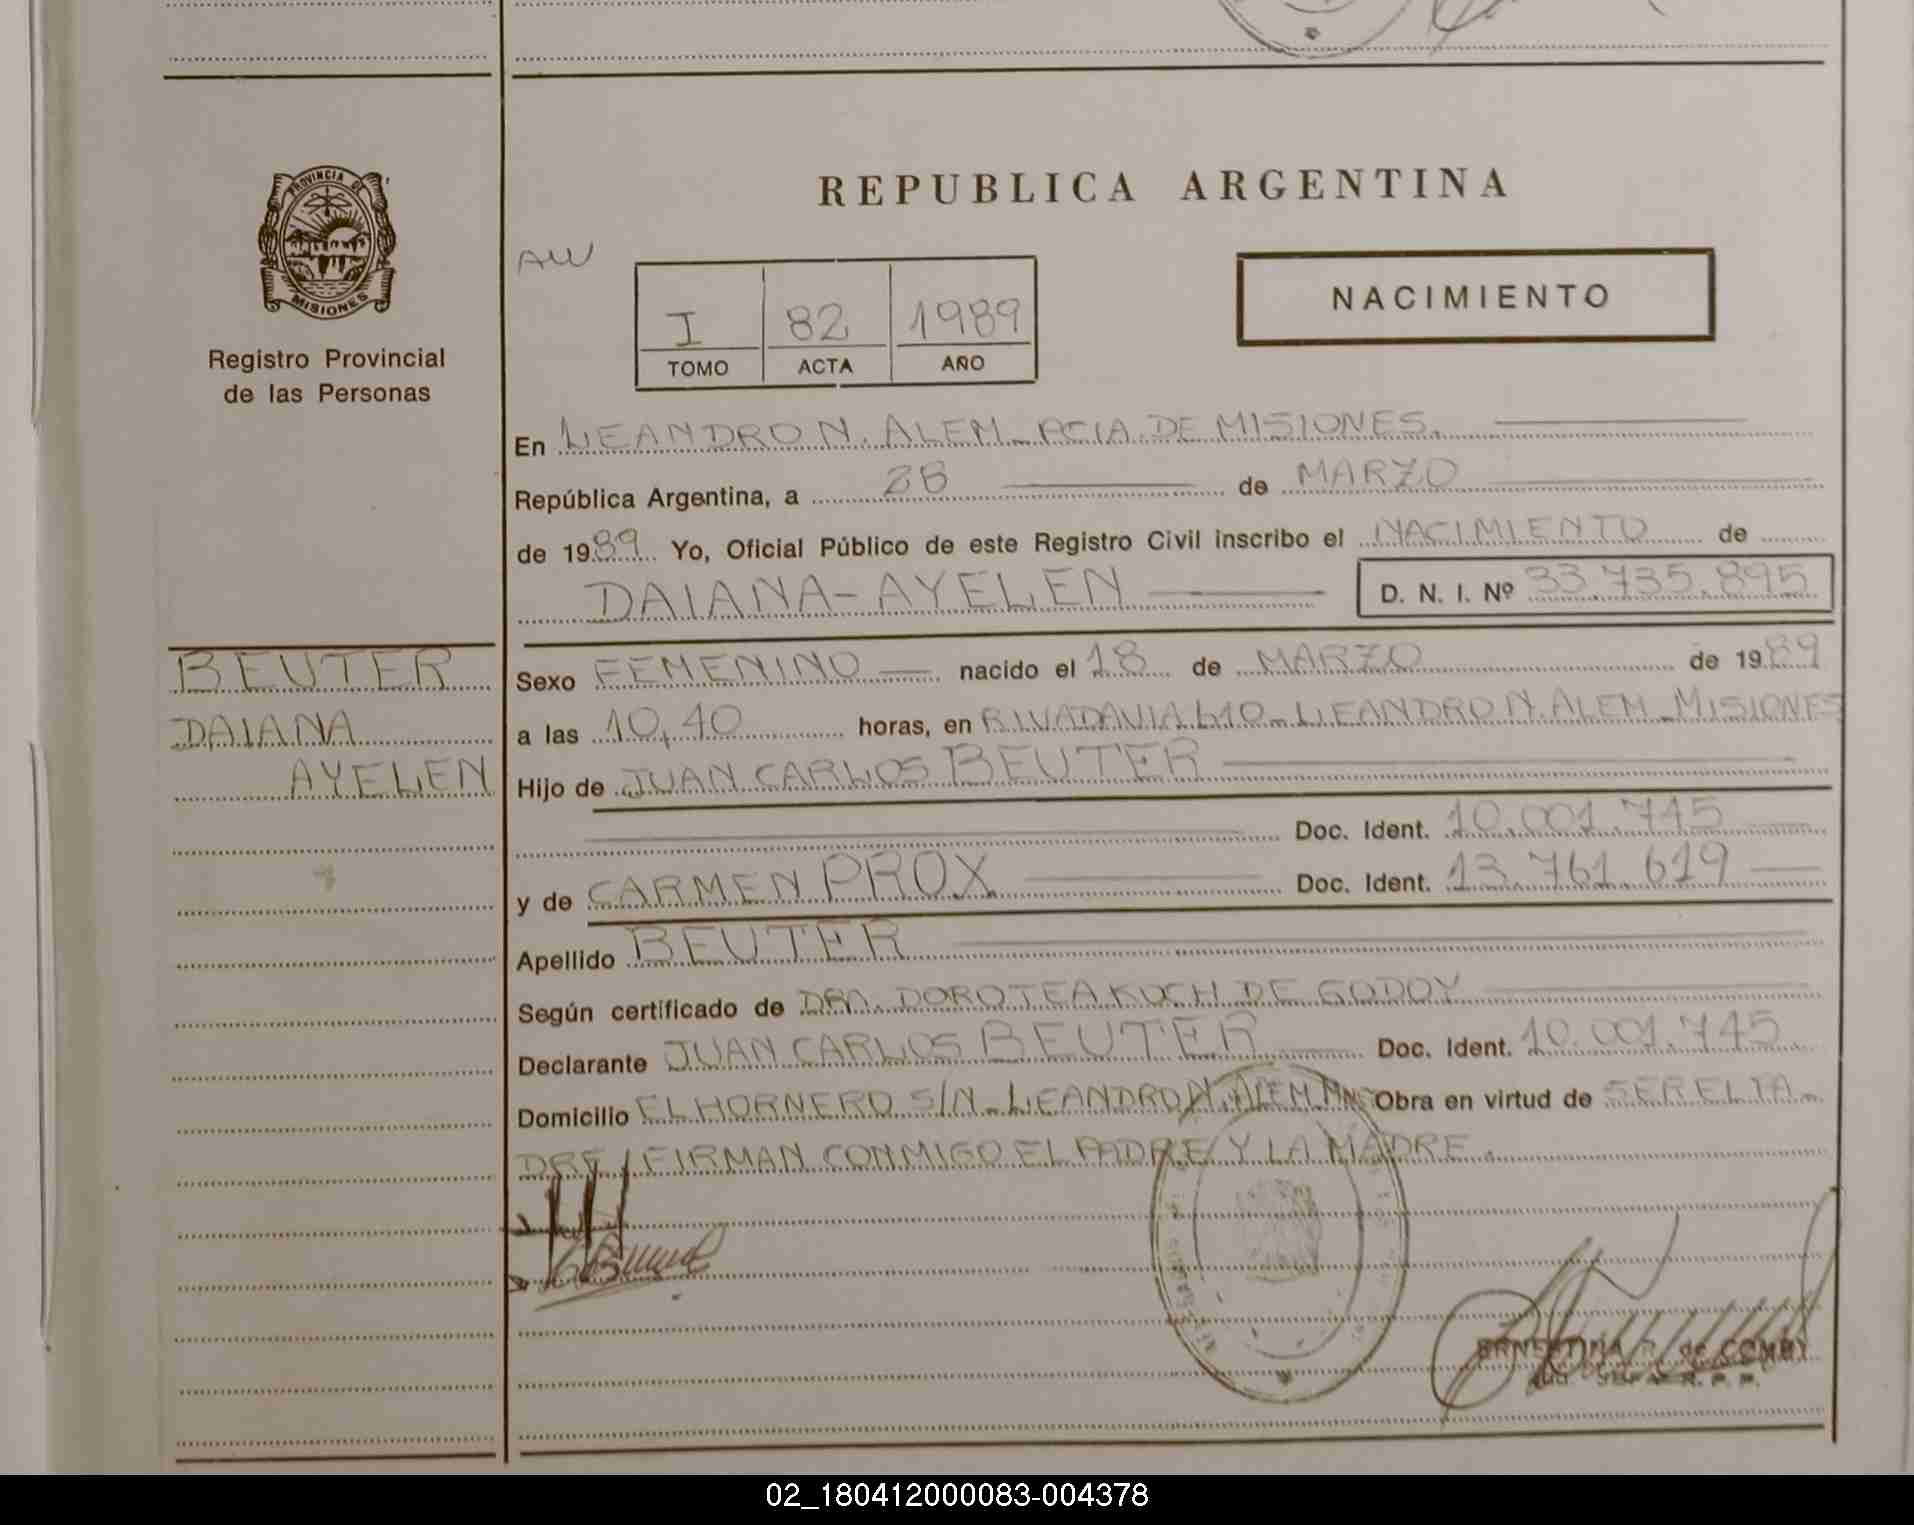 PROVINCIA DE
MISIONES
Registro Provincial
de las Personas
BEUTER
DAIANA
AYELEN
REPUBLICA ARGENTINA
AW
I 82 1989
TOMO ACTA AÑO
NACIMIENTO
En LEANDRO N. ALEM - PCIA. DE MISIONES.
República Argentina, a 28 de MARZO
de 1989 Yo, Oficial Público de este Registro Civil inscribo el NACIMIENTO de
DAIANA-AYELEN D. N. I. Nº 33.735.895
Sexo FEMENINO nacido el 18 de MARZO de 1989
a las 10,40 horas, en RIVADAVIA 410 - LEANDRO N. ALEM - MISIONES
Hijo de JUAN CARLOS BEUTER
Doc. Ident. 10.001.745
y de CARMEN PROX Doc. Ident. 13.761.619
Apellido BEUTER
Según certificado de DRA. DOROTEA KUCH DE GODOY
Declarante JUAN CARLOS BEUTER Doc. Ident. 10.001.745
Domicilio EL HORNERO S/N - LEANDRO N. ALEM MNES Obra en virtud de SER EL PA-
DRE / FIRMAN CONMIGO EL PADRE Y LA MADRE.
ERNESTINA R. de COMBY
R. P. P.
02_180412000083-004378